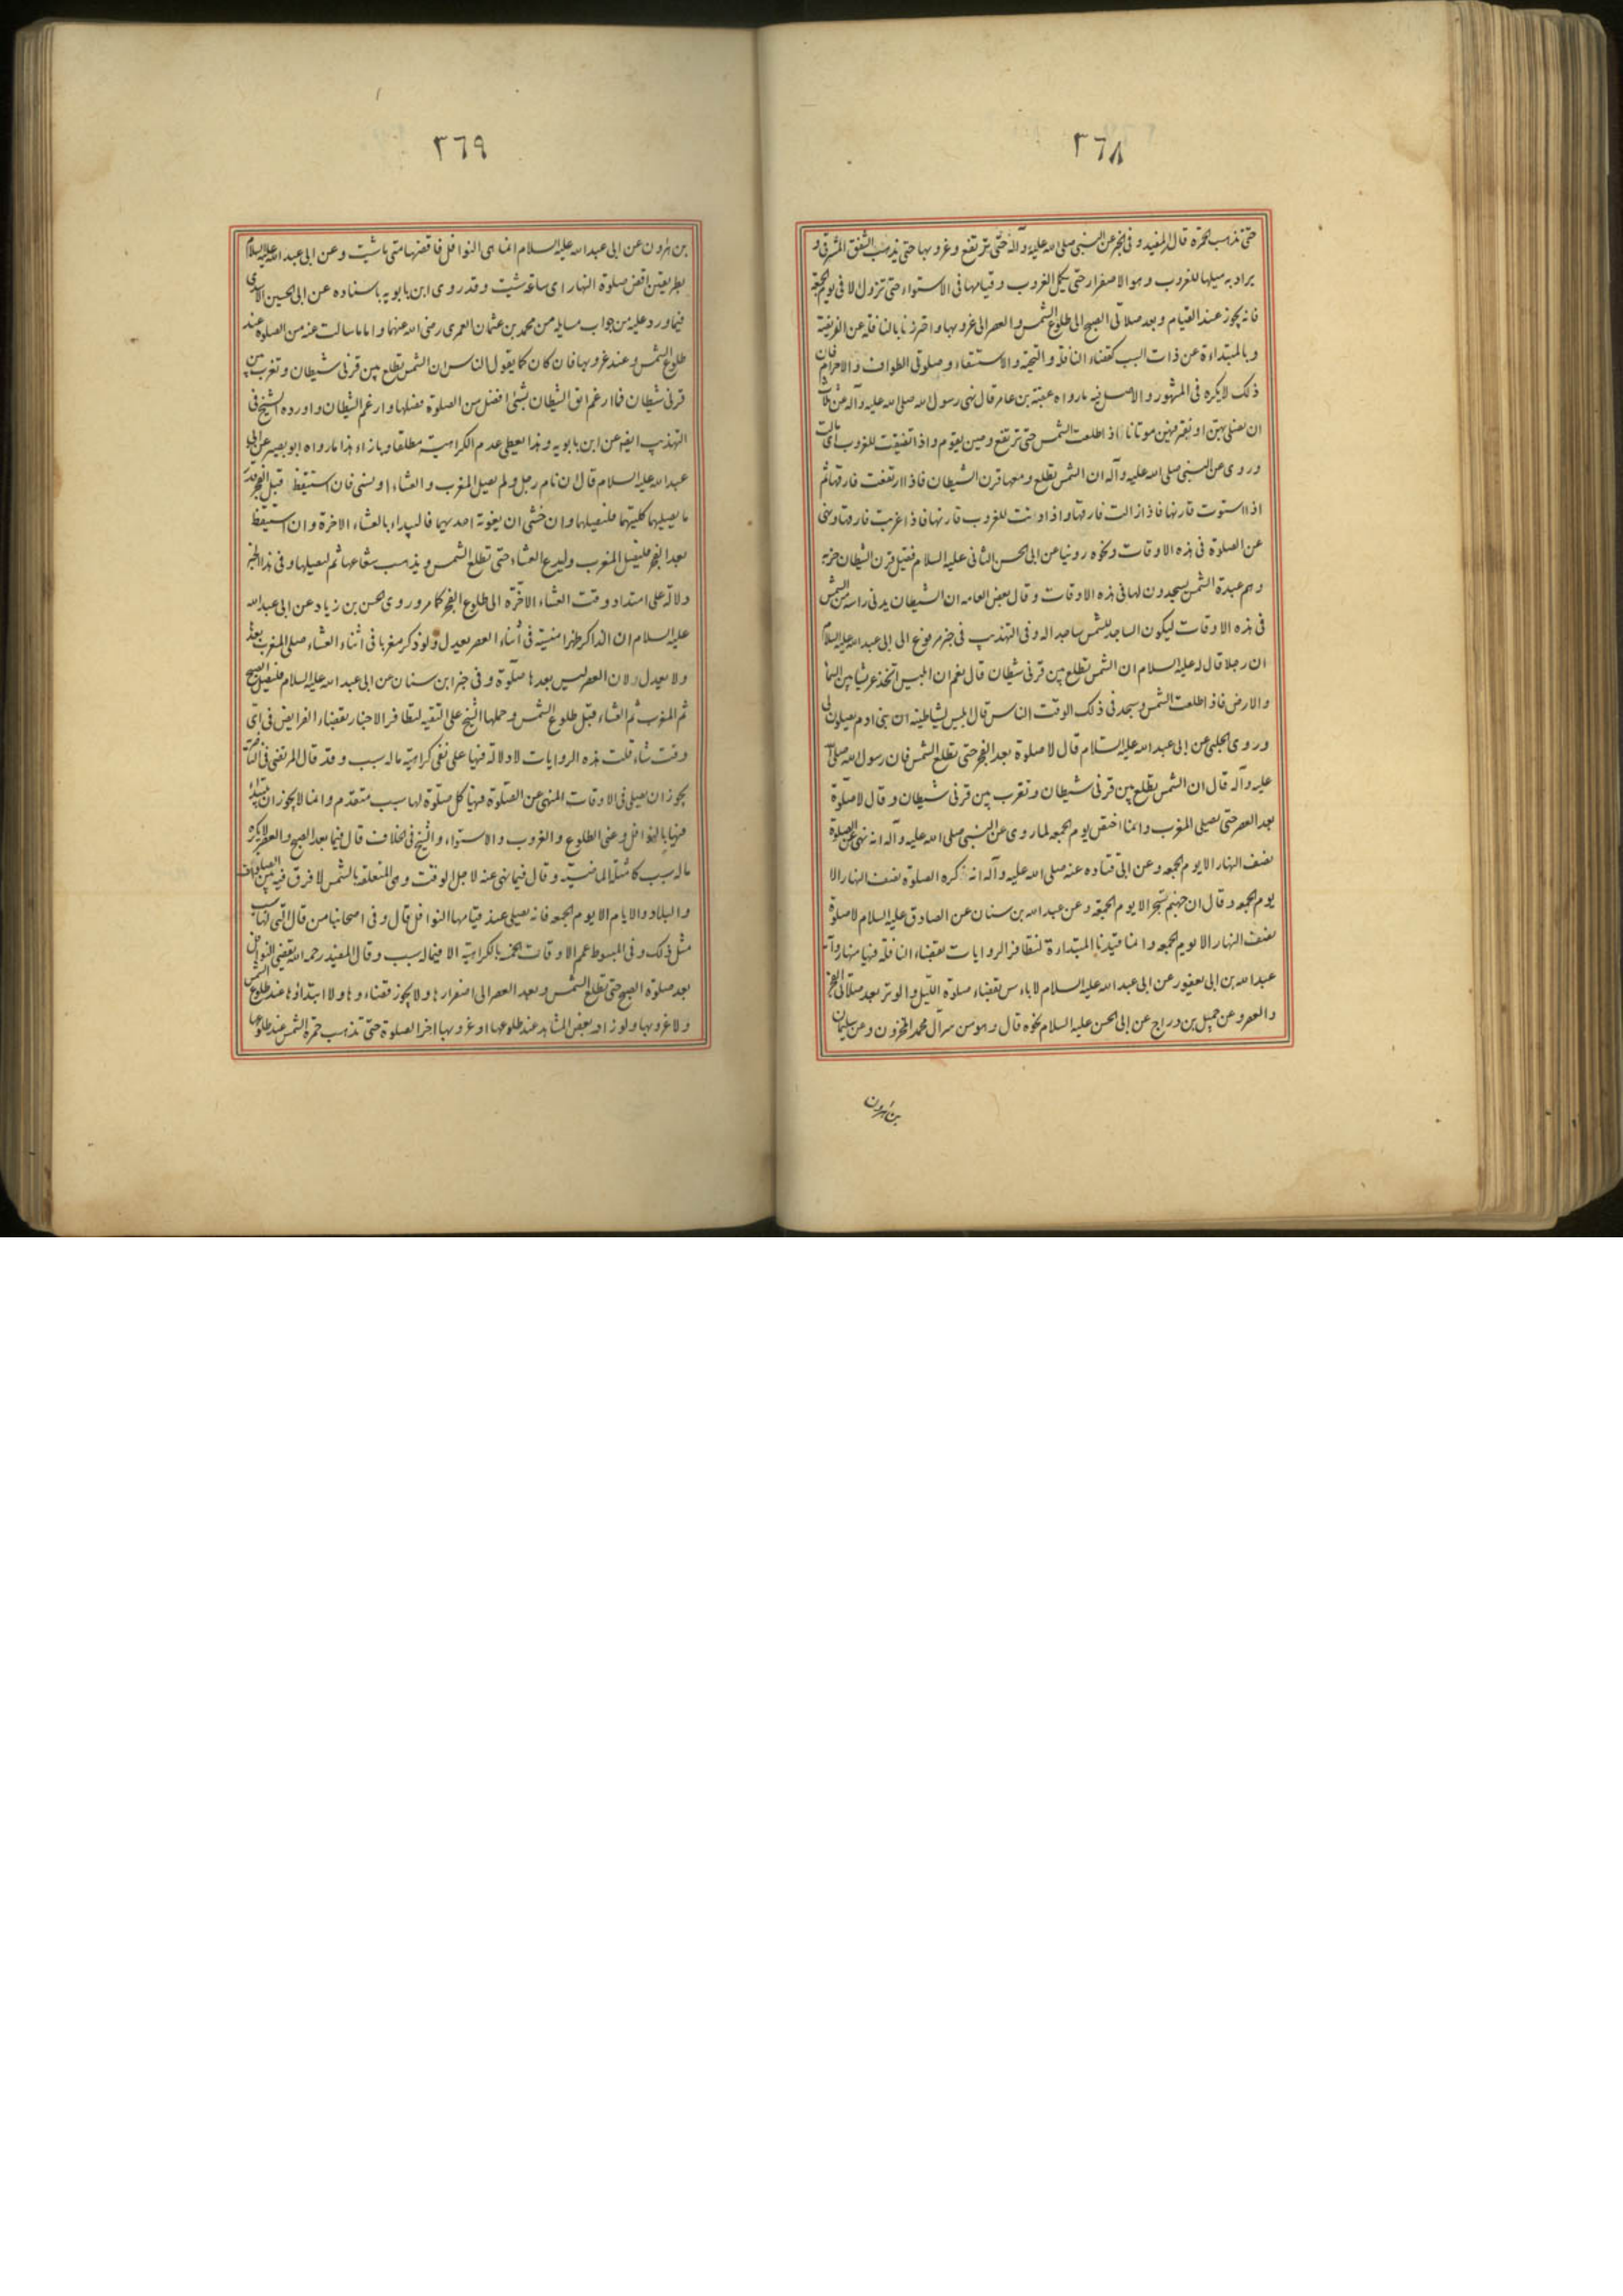 ٣٦٨
حتى تذهب الحمرة قال المفيد و فى الخبر عن النبى صلى الله عليه و آله حتى ترتفع و غروبها حتى يذهب الشفق المشرقى و
يراد به ميلها للغروب و هو الاصفرار حتى يكمل الغروب و قيامها فى الاستواء حتى تزول لا فى يوم الجمعة
فانه يجوز عند القيام و بعد صلاتى الصبح الى طلوع الشمس و العصر الى غروبها و احترزنا بالنافلة عن الفريضة
و بالمبتداءة عن ذات السبب كقضاء النافلة و التحية و الاستسقاء و صلوتى الطواف و الاحرام فان
ذلك لا يكره فى المشهور و الاصل فيه ما رواه عقبة بن عامر قال نهى رسول الله صلى الله عليه و آله عن ثلث
ان نصلى بهن او نقبر فيهن موتانا اذ اطلعت الشمس حتى ترتفع و حين يقوم و اذ اتضيفت للغروب اى مالت
و روى عن النبى صلى الله عليه و آله ان الشمس تطلع و معها قرن الشيطان فاذا ارتفعت فارقها ثم
اذا استوت قارنها فاذا زالت فارقها و اذا دنت للغروب قارنها فاذا غربت فارقها و نهى
عن الصلوة فى هذه الاوقات و نحوه روينا عن ابى الحسن الثانى عليه السلام فقيل قرن الشيطان حزبه
و هم عبدة الشمس يسجدون لها فى هذه الاوقات و قال بعض العامه ان الشيطان يدنى راسه من الشمس
فى هذه الاوقات ليكون الساجد للشمس ساجدا له و فى التهذيب فى خبر مرفوع الى ابى عبد الله عليه السلام
ان رجلا قال له عليه السلام ان الشمس تطلع بين قرنى شيطان قال نعم ان ابليس اتخذ عرشا بين السماء
و الارض فاذ اطلعت الشمس و سجد فى ذلك الوقت الناس قال ابليس لشياطينه ان بنى ادم يصلون لى
و روى الحلبى عن ابى عبد الله عليه السلام قال لا صلوة بعد الفجر حتى تطلع الشمس فان رسول الله صلى الله
عليه و آله قال ان الشمس تطلع بين قرنى شيطان و تغرب بين قرنى شيطان و قال لا صلوة
بعد العصر حتى يصلى المغرب و انما اختص يوم الجمعه لما روى عن النبى صلى الله عليه و آله انه نهى عن الصلوة
نصف النهار الا يوم الجمعه و عن ابى قتاده عنه صلى الله عليه و آله انه كره الصلوة نصف النهار الا
يوم الجمعه و قال ان جهنم تسجر الا يوم الجمعة و عن عبد الله بن سنان عن الصادق عليه السلام لا صلوة
نصف النهار الا يوم الجمعه و انما قيدنا بالمبتداءة لتظافر الروايات بقضاء النافلة فيها منها رواية
عبد الله بن ابى يعفور عن ابى عبد الله عليه السلام لا باءس بقضاء صلوة الليل و الوتر بعد صلاتى الفجر
و العصر و عن جميل بن دراج عن ابى الحسن عليه السلام نحوه قال و هو من سر آل محمد المخزون و عن سليمان
بن هرون
٣٦٩
بن هرون عن ابى عبد الله عليه السلام انما هى النوافل فاقضها متى ما شيت و عن ابى عبد الله عليه السلام
بطريقين اقض صلوة النهار اى ساعة شيت و قد روى ابن بابويه باسناده عن ابى الحسين الاسدى
فيما ورد عليه من جواب مسايله من محمد بن عثمان العمرى رضى الله عنهما و اما ما سالت عنه من الصلوة عند
طلوع الشمس و عند غروبها فان كان كما يقول الناس ان الشمس تطلع بين قرنى شيطان و تغرب بين
قرنى شيطان فما ارغم انف الشيطان بشئ افضل من الصلوة فصلها و ارغم الشيطان و اورده الشيخ فى
التهذيب ايضه عن ابن بابويه و هذا يعطى عدم الكراهية مطلقا و بازاء هذا ما رواه ابو بصير عن ابى
عبد الله عليه السلام قال ان نام رجل و لم يصل المغرب و العشاء او نسى فان استيقظ قبل الفجر قدر
ما يصليهما كليتهما فليصلهما و ان خشى ان يفوته احديهما فاليبداء بالعشاء الاخرة و ان استيقظ
بعد الفجر فليصل المغرب و ليدع العشاء حتى تطلع الشمس و يذهب شعاعها ثم ليصليها و فى هذا الخبر
دلالة على امتداد وقت العشاء الاخرة الى طلوع الفجر كما مر و روى حسن بن زياد عن ابى عبد الله
عليه السلام ان الذاكر ظهرا منسية فى اثناء العصر يعدل و لو ذكر مغربا فى اثناء العشاء صلى المغرب بعد
و لا يعدل لان العصر ليس بعدها صلوة و فى خبر ابن سنان عن ابى عبد الله عليه السلام فليصل الصبح
ثم المغرب ثم العشاء قبل طلوع الشمس و حملها الشيخ على التقيه لتظافر الاخبار بقضاء الفرايض فى اى
وقت شاء قلت هذه الروايات لا دلالة فيها على نفى كراهية ما له سبب و قد قال المرتضى فى
يجوز ان يصلى فى الاوقات المنهى عن الصلوة فيها كل صلوة لها سبب متقدم و انما لا يجوز ان يبتداء
فيها بالنوافل و عنى الطلوع و الغروب و الاستواء و الشيخ فى الخلاف قال فيما بعد الصبح و العصر لا يكره
ما له سبب كامثلة الماضية و قال فيما نهى عنه لاجل الوقت و هى المتعلقه بالشمس لا فرق فيه بين الصلوات
و البلاد و الايام الا يوم الجمعه فانه يصلى عند قيامها النوافل قال و فى اصحابنا من قال التى لها سبب
مثل ذلك و فى المبسوط عمم الاوقات الخمسه بالكراهية الا فيما له سبب و قال المفيد رحمه الله يقضى النوافل
بعد صلوة الصبح حتى تطلع الشمس و بعد العصر الى اصفرارها و لا يجوز قضاءوها و لا ابتداؤها عند طلوع الشمس
و لا غروبها و لو زار بعض المشاهد عند طلوعها او غروبها اخر الصلوة حتى تذهب حمرة الشمس عند طلوعها